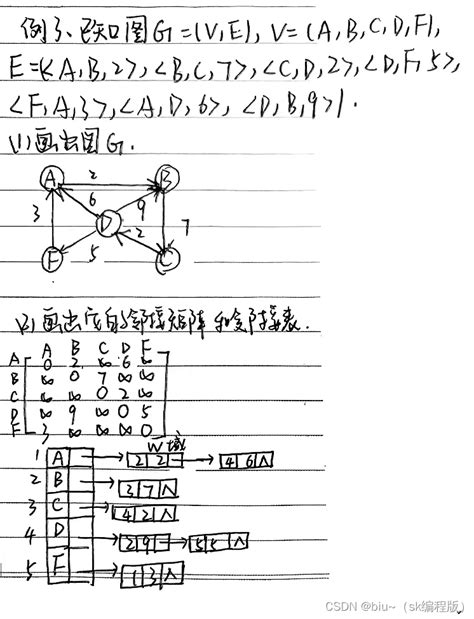 例3、已知图G=(V,E), V={A,B,C,D,F},
E={<A,B,2>,<B,C,7>,<C,D,2>,<D,F,5>,
<F,A,3>,<A,D,6>,<D,B,9>}.
(1)画出图G.
A 2 B
3 6 9
D 2 7
F 5 C
(2)画出它的邻接矩阵和邻接表.
A B C D F
A 0 2 ∞ 6 ∞
B ∞ 0 7 ∞ ∞
C ∞ ∞ 0 2 ∞
D ∞ 9 ∞ 0 5
F 3 ∞ ∞ ∞ 0
W域
1 A 2 2 4 6 ∧
2 B 3 7 ∧
3 C 4 2 ∧
4 D 2 9 5 5 ∧
5 F 1 3 ∧
CSDN @biu~（sk编程版）